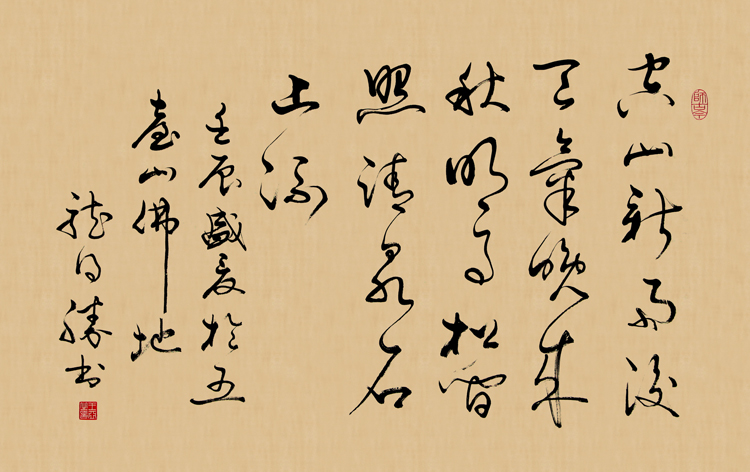 空山新雨後
天氣晚來
秋明月松間
照清泉石
上流
壬辰盛夏於五
臺山佛地
龍勝書